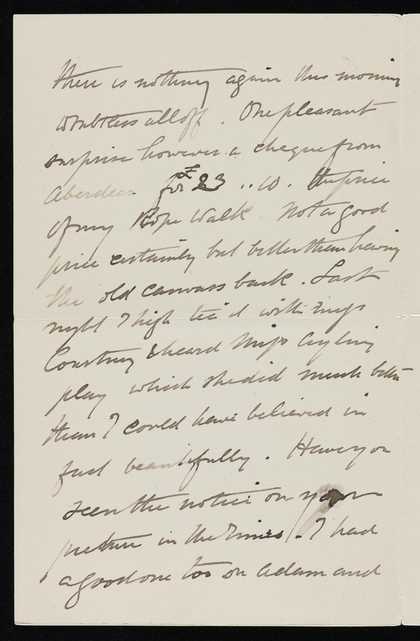 there is nothing again this morning
doubtless all off. One pleasant
surprise however a cheque from
Aberdeen for £23 .. 10. the price
of my Rope Walk Not a good
price certainly but better than having
the old canvass back. Last
night I high tea'd with Miss
Courtney & heard Miss
play which she did much better
than I could have believed in
fact beautifully. Have you
seen the notice on your
picture in the Times. I had
a good one too on Adam and